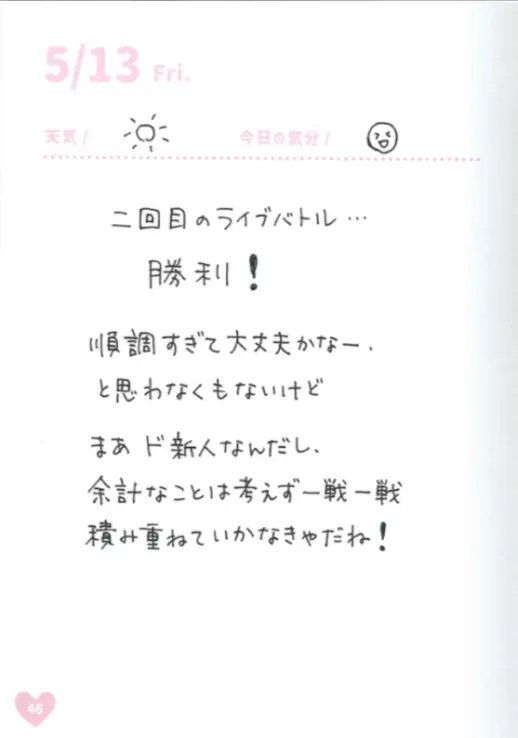 5/13 Fri.
天気/ 今日の気分/
二回目のライブバトル…
勝利!
順調すぎて大丈夫かなー、
と思わなくもないけど
まあ ド新人なんだし、
余計なことは考えず一戦一戦
積み重ねていかなきゃだね!
46